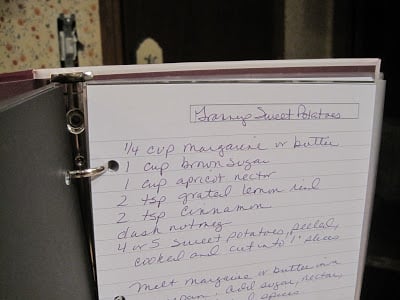 Granny Sweet Potatoes
1/4 cup margarine or butter
1 cup brown sugar
1 cup apricot nector
2 tsp grated lemon rind
2 tsp cinnamon
dash nutmeg
4 or 5 sweet potatoes, peeled,
cooked and cut into 1" slices
Melt margarine or butter in a
pan. Add sugar, nectar,
spices